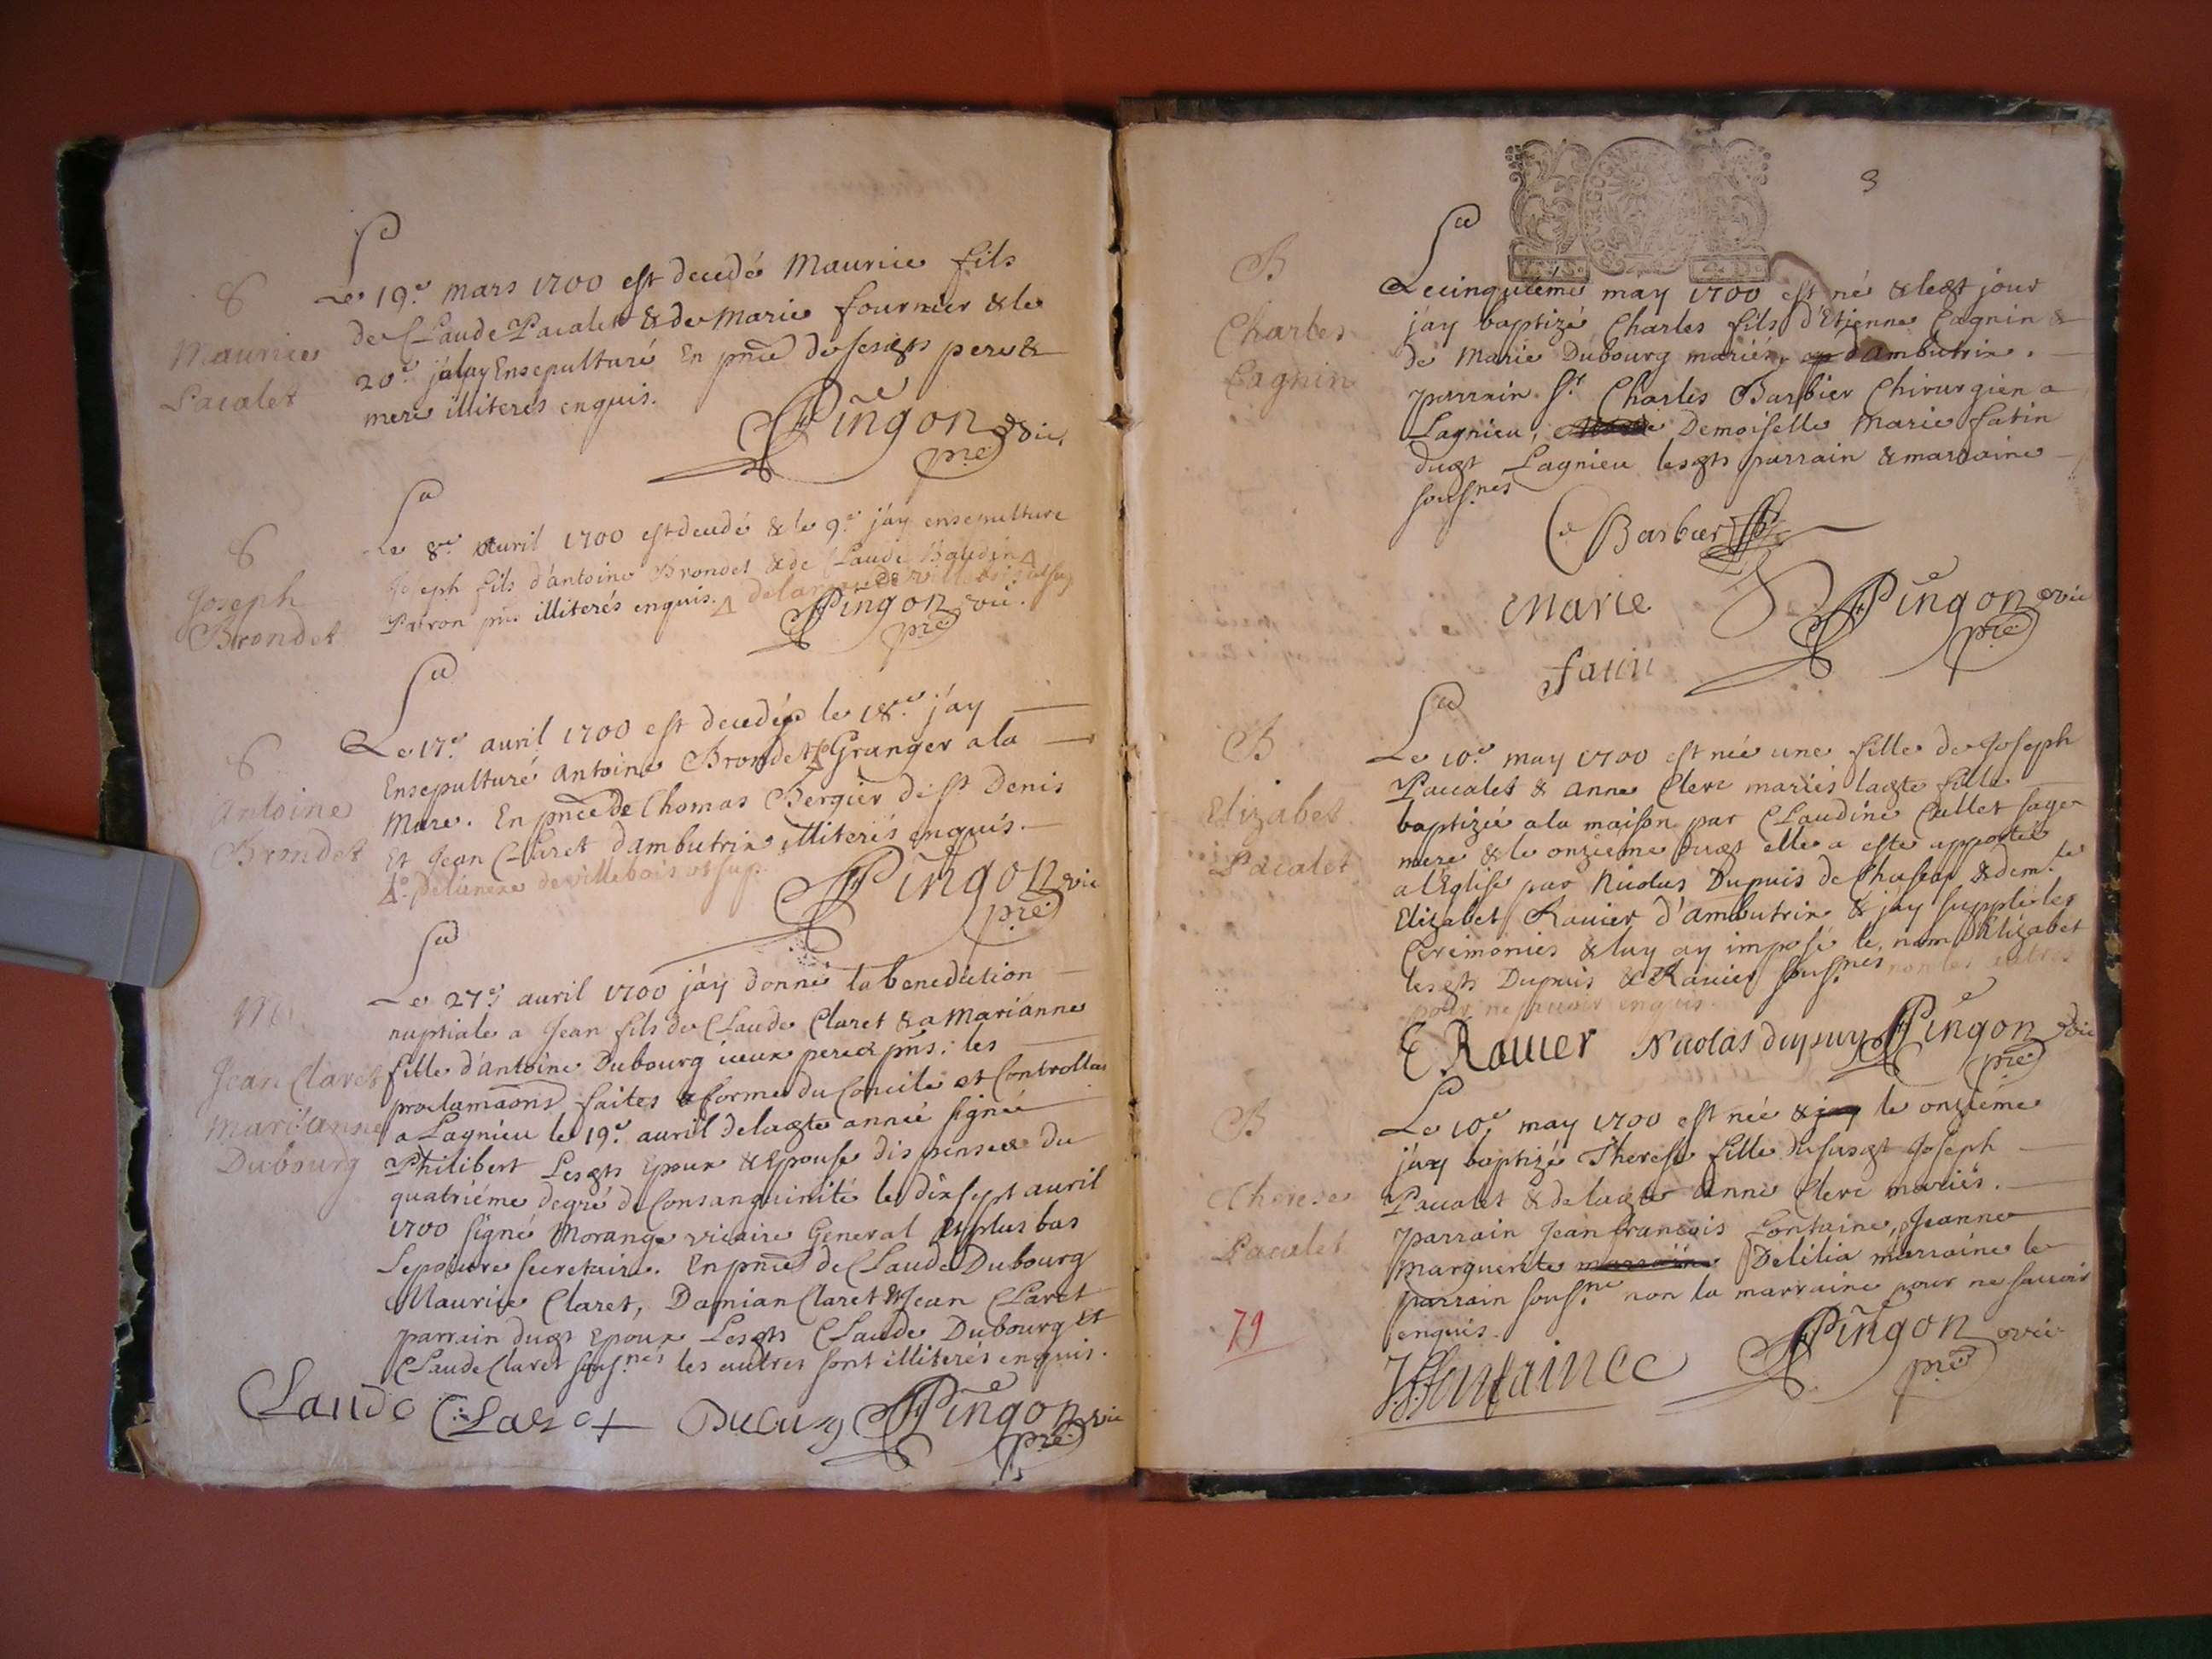 S
Maurice
Pacalet
Le 19e mars 1700 est decedé Maurice fils
de Claude Pacalet & de Marie fournier & le
20e jalay Ensepulturé En pnce de sesdts pere &
mere illiterés enquis.
Pingon vic
pre
S
Joseph
Brondet
Le 8e auril 1700 est decedé & le 9e j'ay ensepulture
Joseph fils d'antoine Brondet & de Claude Baudin
Patron pns illiterés enquis.
Pingon vic.
pre
S
Antoine
Brondet
Le 17e auril 1700 est decedé le 18e j'ay
Ensepulturé Antoine Brondet Granger a la
Mare. En pnce de Thomas Bergier de St Denis
Et Jean Claret d'ambutrix illiterés enquis.
de villebois
Pingon vic
pre
M
Jean Claret
Mari'anne
Dubourg
Le 27e auril 1700 j'ay donné la benediction
nuptiale a Jean fils de Claude Claret & a Mari'anne
fille d'antoine Dubourg iceux peres pns; les
proclamaons faites a forme du Concile et Controllas
a Lagnieu le 19e auril deladte année signée
Philibert Lesdts Epoux & Epouse dispenseé du
quatriéme degré de Consanguinité le dixsept auril
1700 signé Morange vicaire General Et plus bas
Lepoivre secretaire. En pnce de Claude Dubourg
Maurice Claret, Damian Claret & Jean Claret
parrain dudt Epoux Lesdts Claude Dubourg et
Claude Claret sousnés les autres sont illiterés enquis.
Claude Claret Pingon vic
pre
3
B
Charles
Cagnin
Le cinquiéme may 1700 est né & ledt jour
jay baptizé Charles fils d'Etienne Cagnin &
de Marie Dubourg mariés d'ambutrix.
parrain Sr Charles Barbier Chirurgien a
Lagnieu, Demoiselle Marie fatin
dudt Lagnieu lesdts parrain & marraine
sousnes
Barbier
Marie
fatin
Pingon vic
pre
B
Elizabet
Pacalet
Le 10e may 1700 est née une fille de Joseph
Pacalet & anne Clerc mariés ladte fille
baptizée a la maison par Claudine Callet sage
mere & le onzieme dudt elle a esté apportée
a l'Eglise par Nicolas Dupuis de & demlle
Elizabet Rauier d'ambutrix & jay supplé les
Ceremonies & luy ay imposé le nom d'Elizabet
lesdts Dupuis & Rauier sousnes non les autres
pour ne sçauoir enquis.
E Rauier Nicolas dupuy Pingon vic
pre
B
Therese
Pacalet
Le 10e may 1700 est née & jay le onziéme
jay baptizé Therese fille de susdt Joseph
Pacalet & deladte Anne Clerc mariés.
parrain Jean francois fontaine, Jeanne
Marguerite marraine Delilia marraine le
parrain sousne non la marraine pour ne sauoir
enquis.
79
JF fontaine
Pingon vic
pre